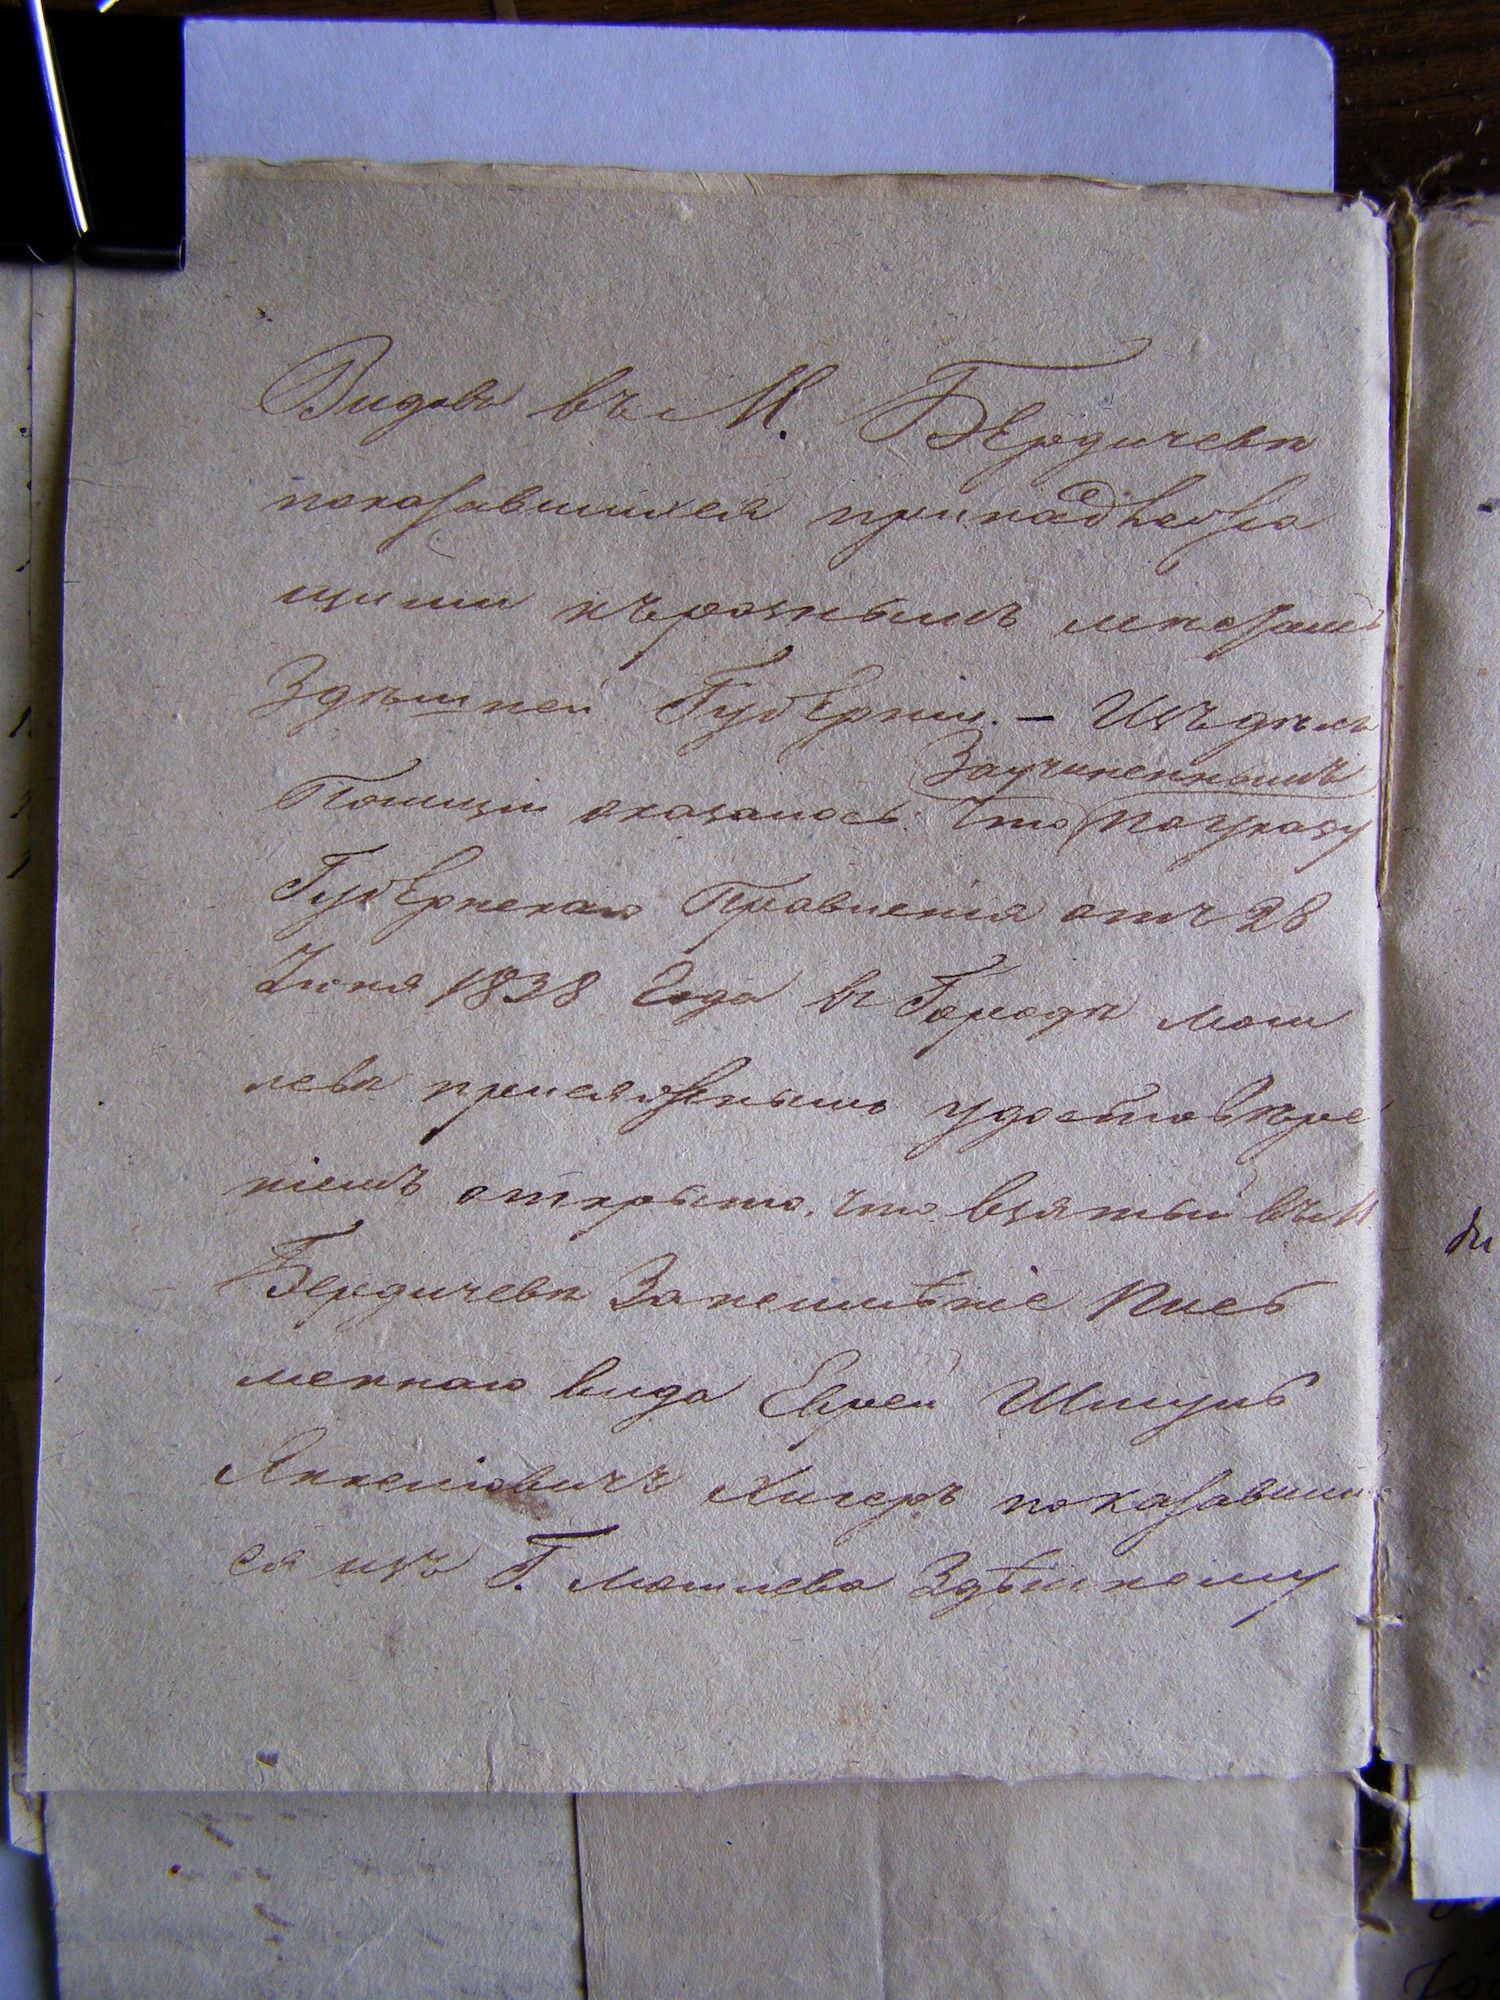 Видовъ въ М. Бердичевѣ
показавшихся принадлежа
щими къ разнымъ мѣстамъ
Здѣшней Губерніи. – Изъ дѣлъ
Заучиненнымъ
Полиціи оказалось: Что по указу
Губернскаго Правленія отъ 28
Іюня 1838 Года въ Городѣ Моги
левѣ присяжнымъ удостовѣре
ніемъ открыто, что взятый въ М.
Бердичевѣ За неимѣніе Пись
меннаго вида Еврей Шмуль
Янкелiовичъ Хигеръ показавший
ся изъ Г. Могилева Здѣшнему